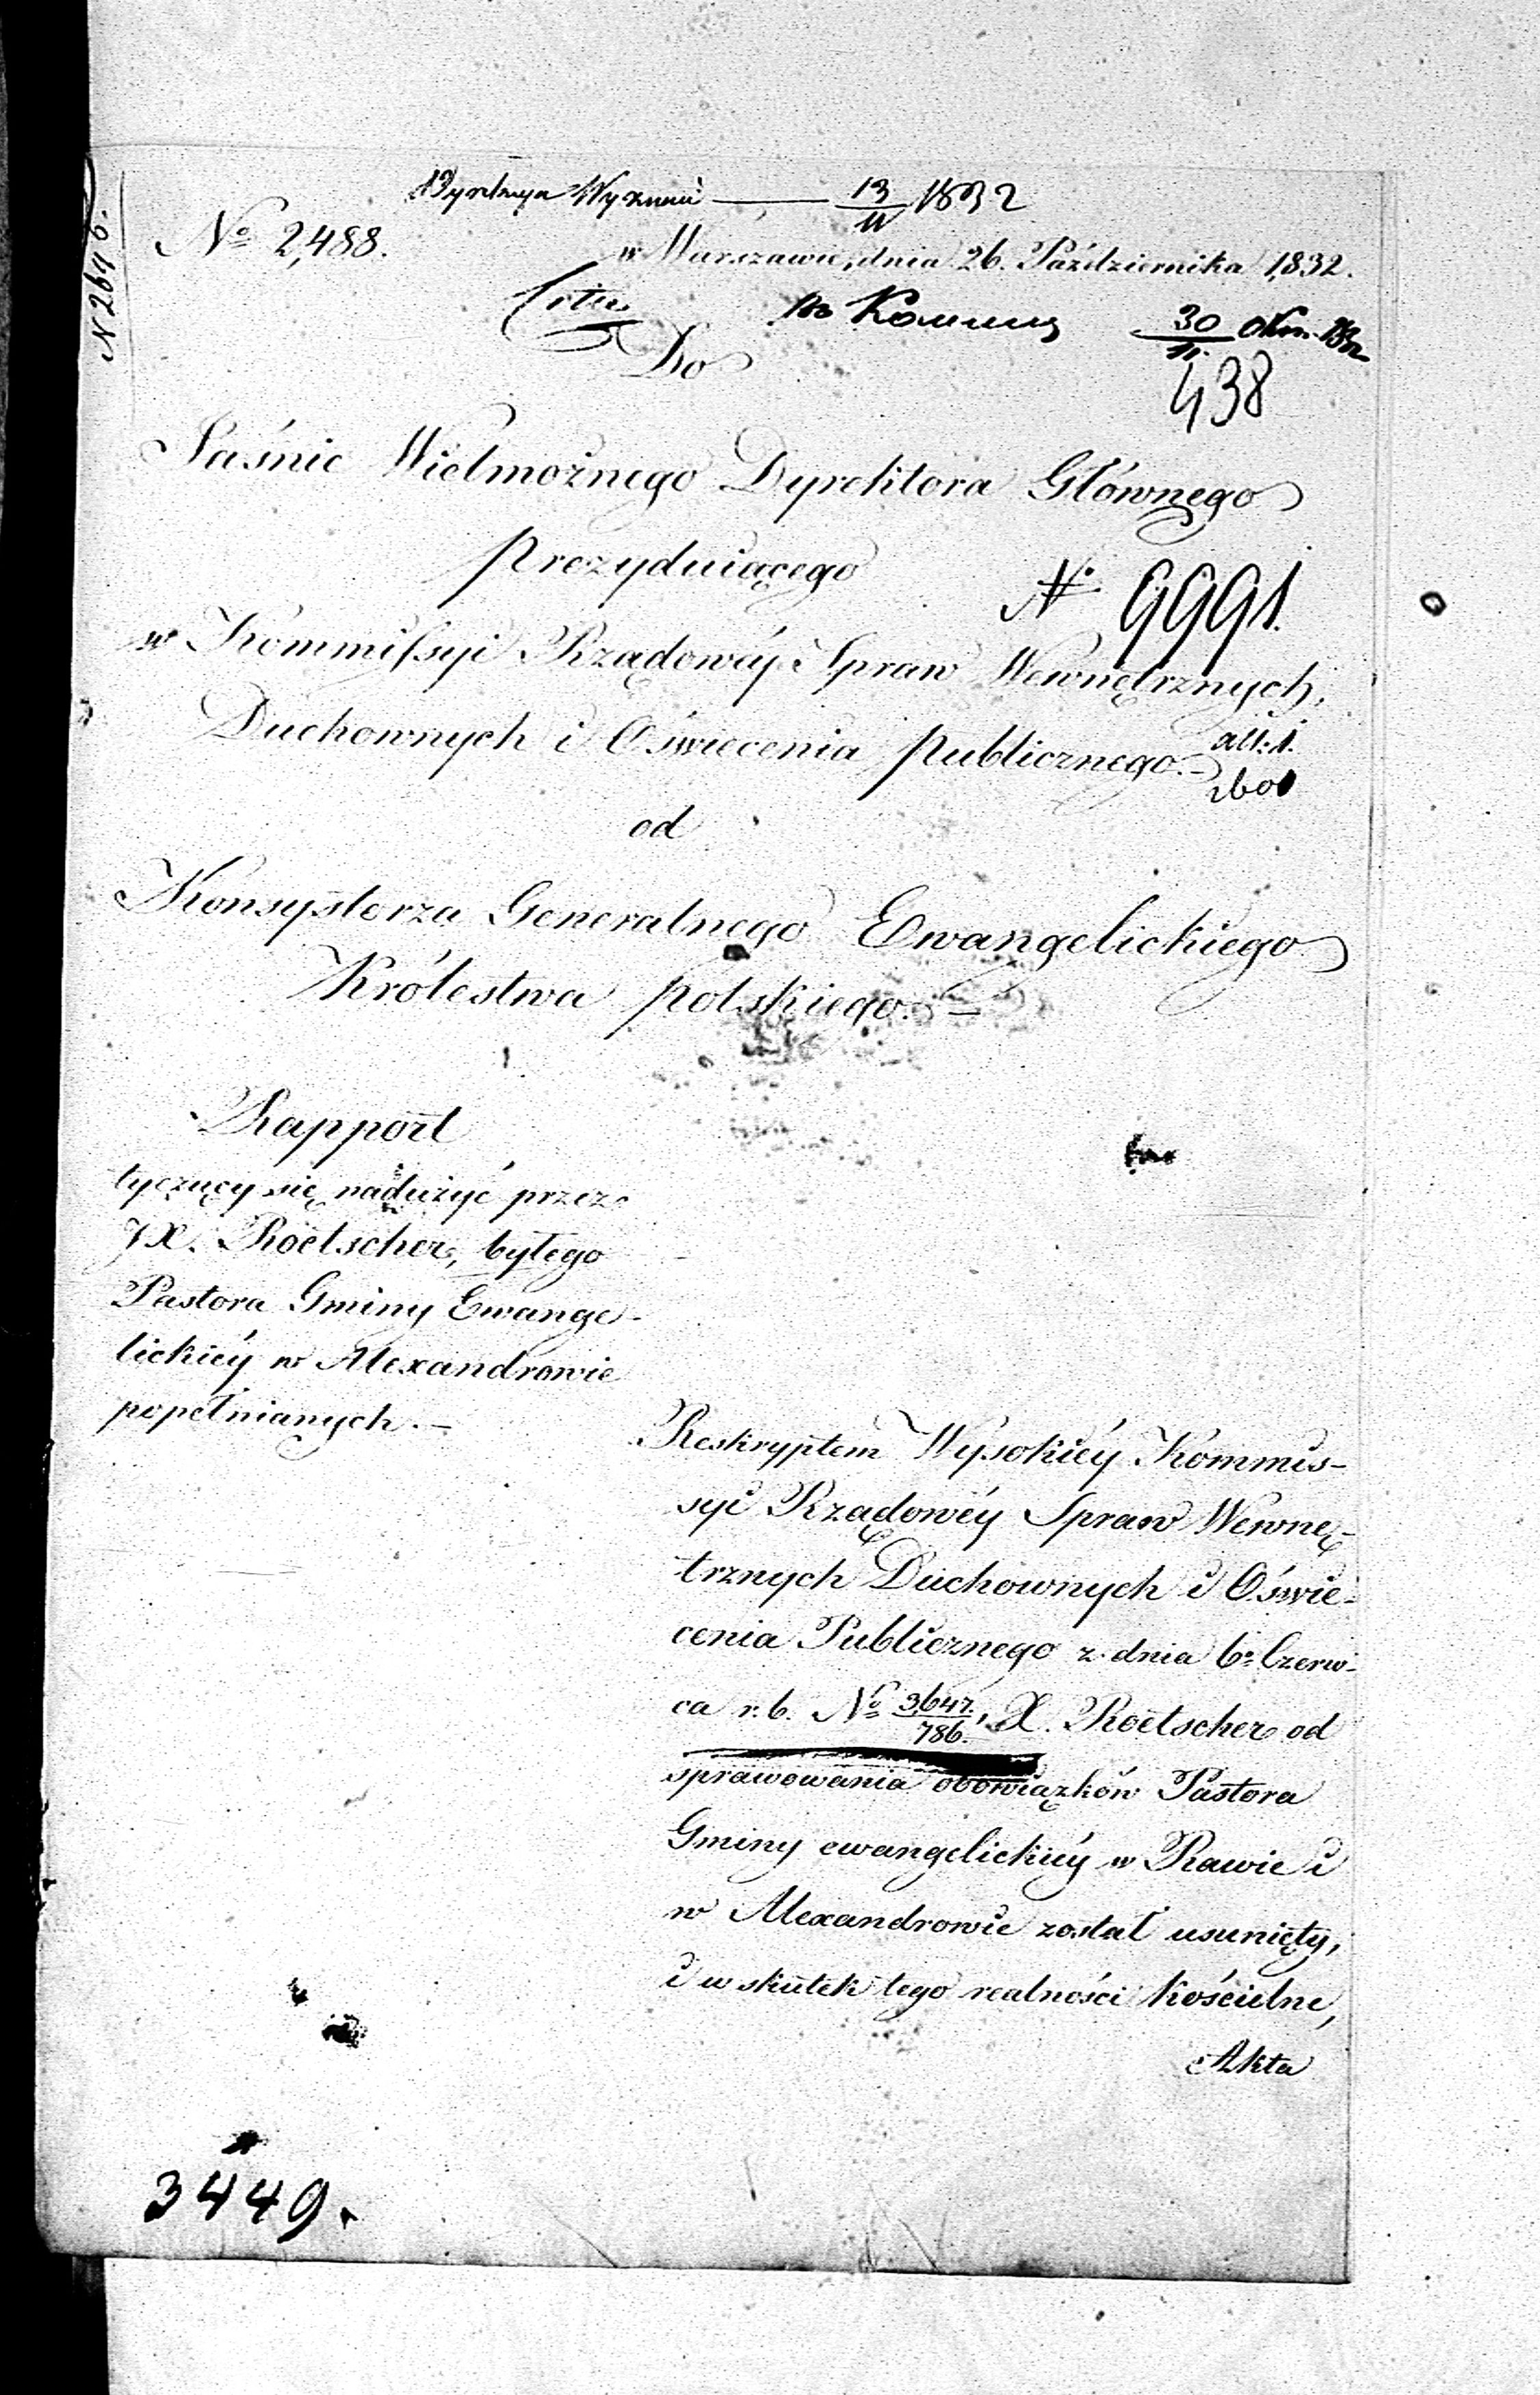 Dyrekcya Wyznań — 13/11 1832
No 2,488.
w Warszawie, dnia 26. Października 1,832.
30/11.
438
Do
Jaśnie Wielmożnego Dyrektora Głównego
Prezyduiącego
No 9991.
w Kommissyi Rządowéy Spraw Wewnętrznych,
Duchownych i Oświecenia Publicznego.–
all: 1.
od
Konsystorza Generalnego Ewangelickiego
Królestwa Polskiego. –
Rapport
tyczący się nadużyć przez
JX. Roetscher, byłego
Pastora Gminy Ewange-
lickiéy w Alexandrowie
popełnianych. –
Reskryptem Wysokiéy Kommis-
syi Rządowéy Spraw Wewnę-
trznych Duchownych i Oświe-
cenia Publicznego z dnia 6o Czerw-
ca r. b. No 3,647./786., X. Roetscher od
sprawowania obowiązków Pastora
Gminy ewangelickiéy w Rawie i
w Alexandrowie został usunięty,
i w skutek tego realności kościelne,
Akta
3449.